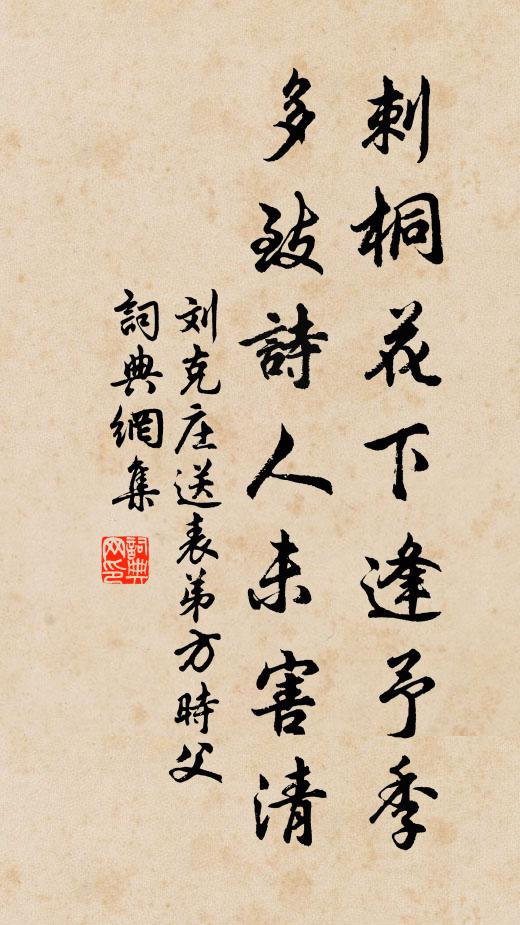 刺桐花下逢予季
多致詩人未害清
刘克庄送表弟方時父
詞典網集
詞典网印